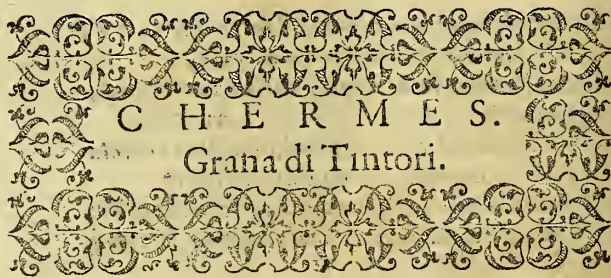 CHERMES.
Grana di Tintori.